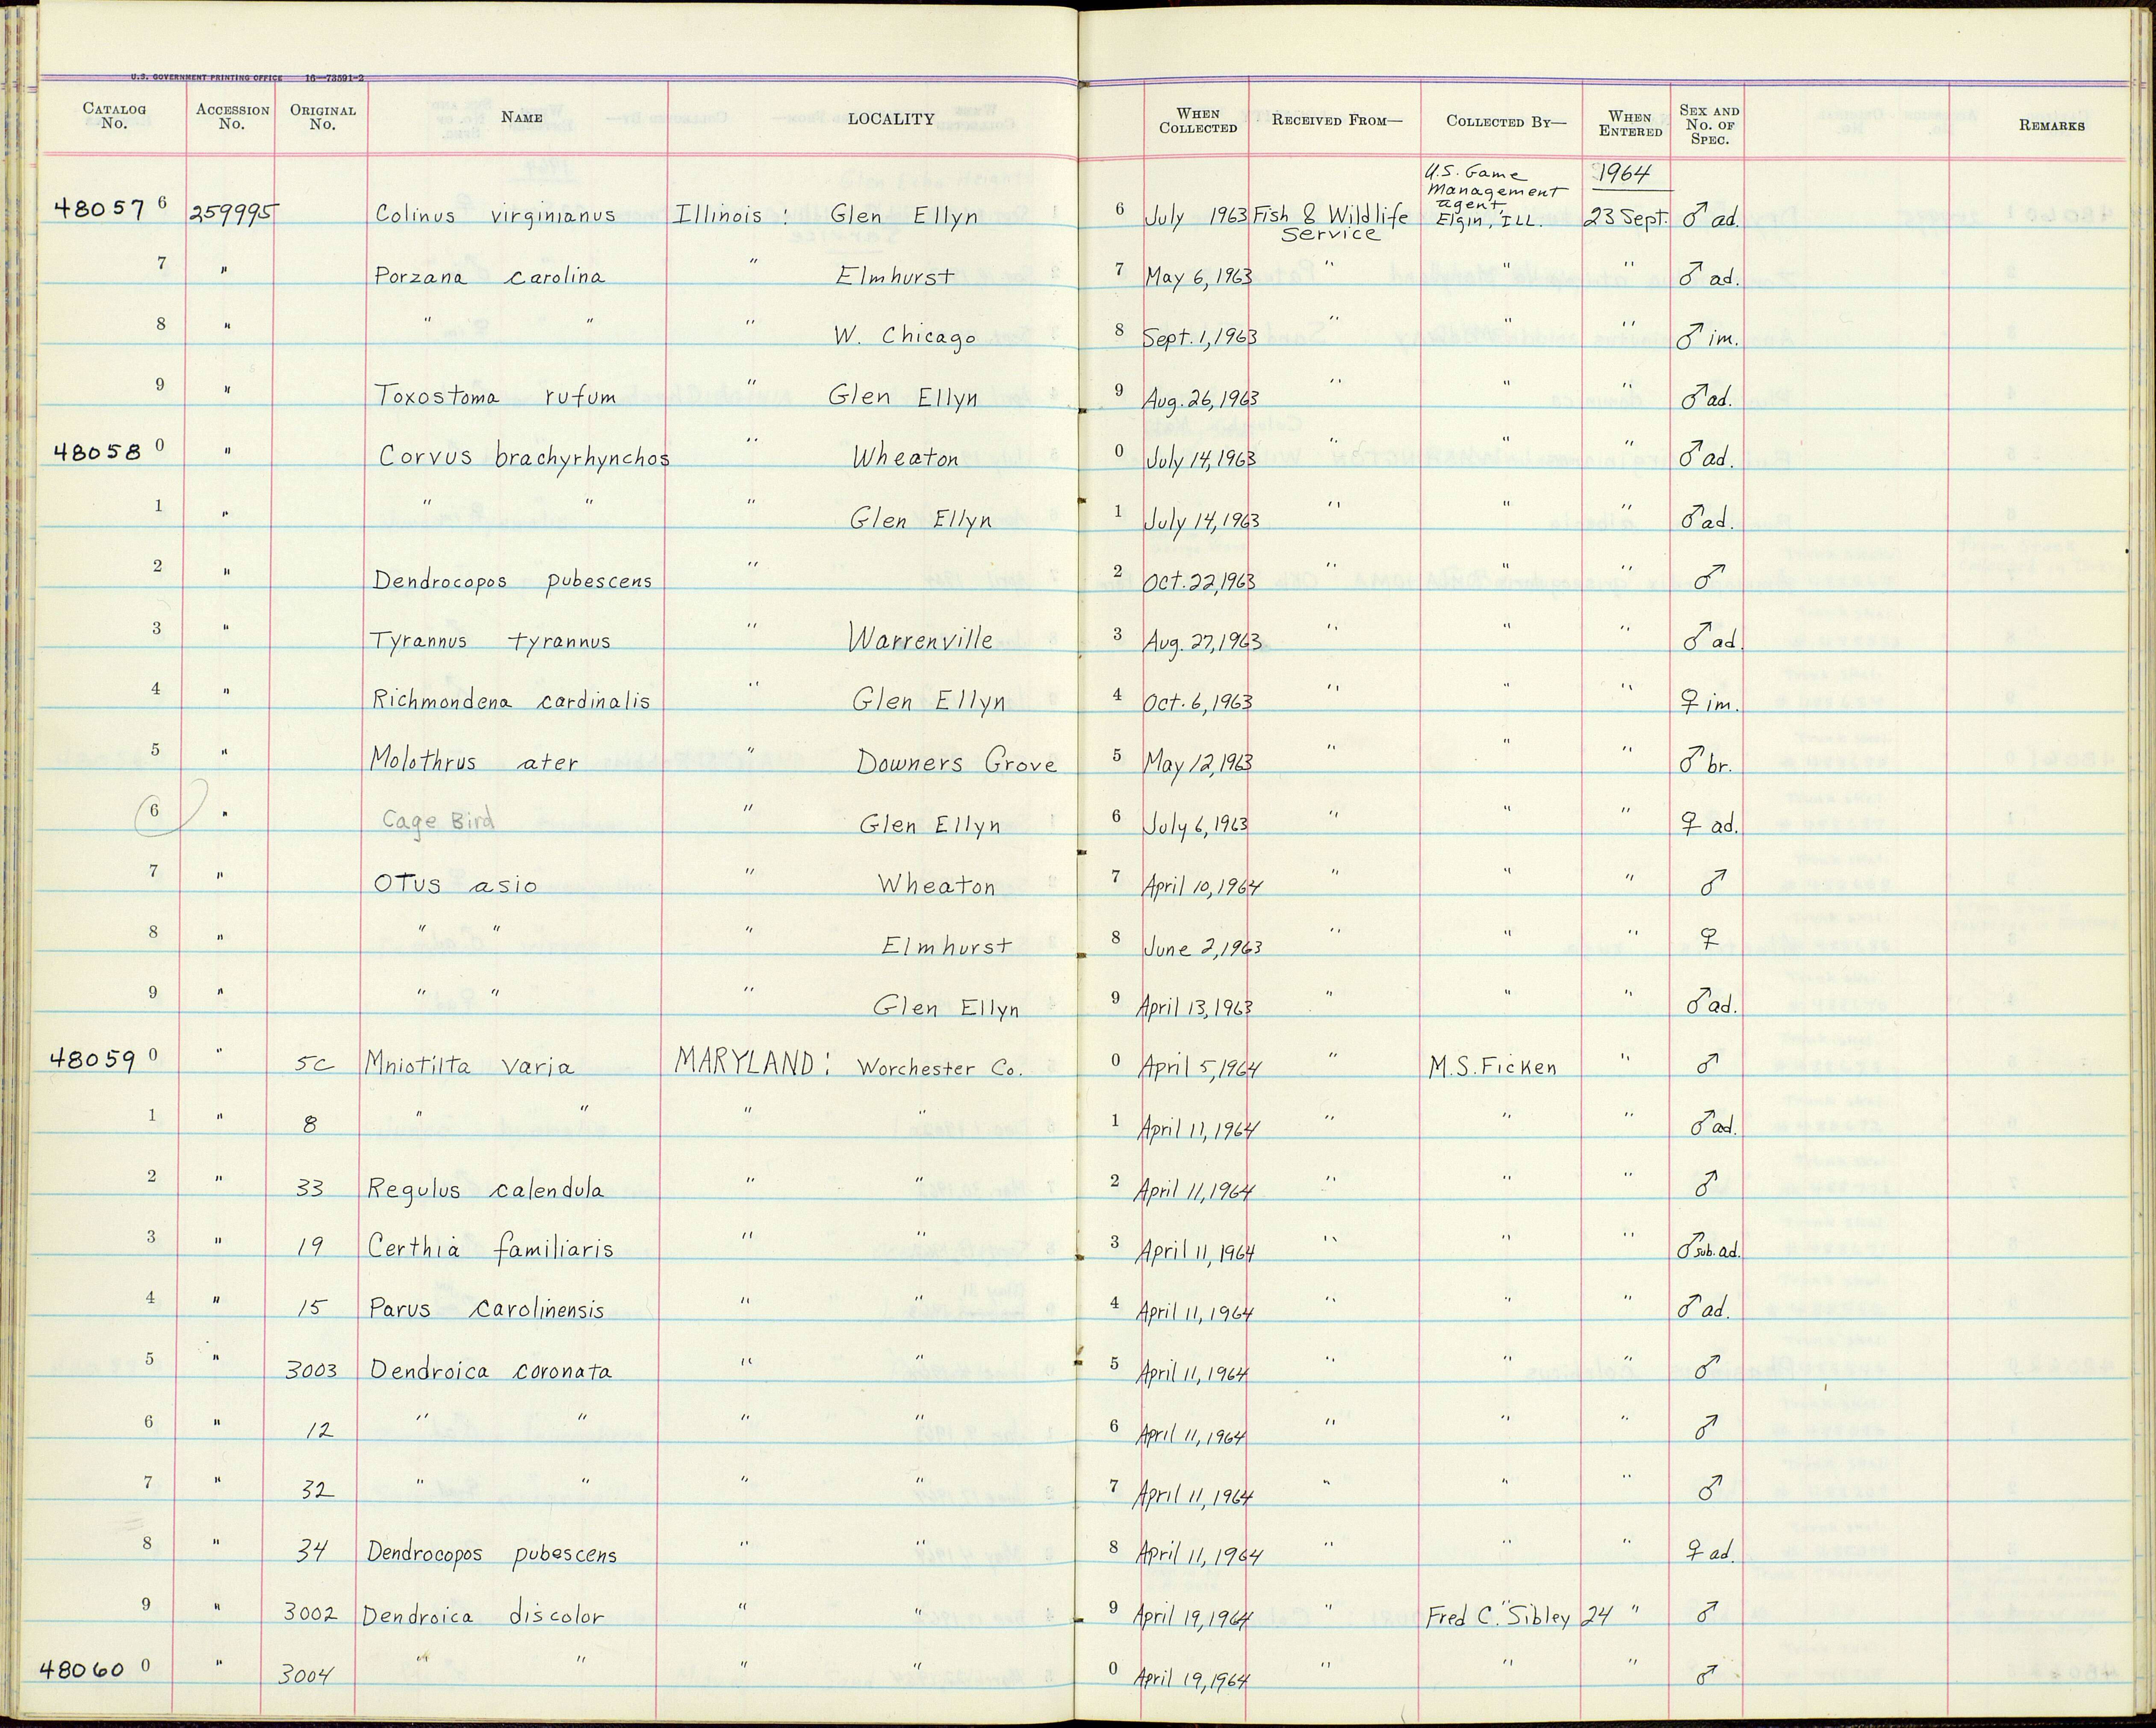 U.S. GOVERNMENT PRINTING OFFICE 16—73591-2
CATALOG No. ACCESSION No. ORIGINAL No. NAME LOCALITY WHEN COLLECTED RECEIVED FROM— COLLECTED BY— WHEN ENTERED SEX AND No. OF SPEC. REMARKS
48057 6 259995 Colinus virginianus Illinois : Glen Ellyn 6 July 1963 Fish & Wildlife Service U.S. Game Management agent, Elgin, ILL. 1964 23 Sept. ♂ ad.
7 " Porzana carolina " Elmhurst 7 May 6, 1963 " " " ♂ ad.
8 " " " " W. Chicago 8 Sept. 1, 1963 " " " ♂ im.
9 " Toxostoma rufum " Glen Ellyn 9 Aug. 26, 1963 " " " ♂ ad.
48058 0 " Corvus brachyrhynchos " Wheaton 0 July 14, 1963 " " " ♂ ad.
1 " " " " Glen Ellyn 1 July 14, 1963 " " " ♂ ad.
2 " Dendrocopos pubescens " 2 Oct. 22, 1963 " " " ♂
3 " Tyrannus tyrannus " Warrenville 3 Aug. 27, 1963 " " " ♂ ad.
4 " Richmondena cardinalis " Glen Ellyn 4 Oct. 6, 1963 " " " ♀ im.
5 " Molothrus ater " Downers Grove 5 May 12, 1963 " " " ♂ br.
6 " Cage Bird " Glen Ellyn 6 July 6, 1963 " " " ♀ ad.
7 " Otus asio " Wheaton 7 April 10, 1964 " " " ♂
8 " " " " Elmhurst 8 June 2, 1963 " " " ♀
9 " " " " Glen Ellyn 9 April 13, 1963 " " " ♂ ad.
48059 0 " 5C Mniotilta varia MARYLAND : Worchester Co. 0 April 5, 1964 " M.S. Ficken " ♂
1 " 8 " " " " 1 April 11, 1964 " " " ♂ ad.
2 " 33 Regulus calendula " " 2 April 11, 1964 " " " ♂
3 " 19 Certhia familiaris " " 3 April 11, 1964 " " " ♂ sub. ad.
4 " 15 Parus carolinensis " " 4 April 11, 1964 " " " ♂ ad.
5 " 3003 Dendroica coronata " " 5 April 11, 1964 " " " ♂
6 " 12 " " " " 6 April 11, 1964 " " " ♂
7 " 32 " " " " 7 April 11, 1964 " " " ♂
8 " 34 Dendrocopos pubescens " " 8 April 11, 1964 " " " ♀ ad.
9 " 3002 Dendroica discolor " " 9 April 19, 1964 " Fred C. Sibley 24 " ♂
48060 0 " 3004 " " " " 0 April 19, 1964 " " " ♂